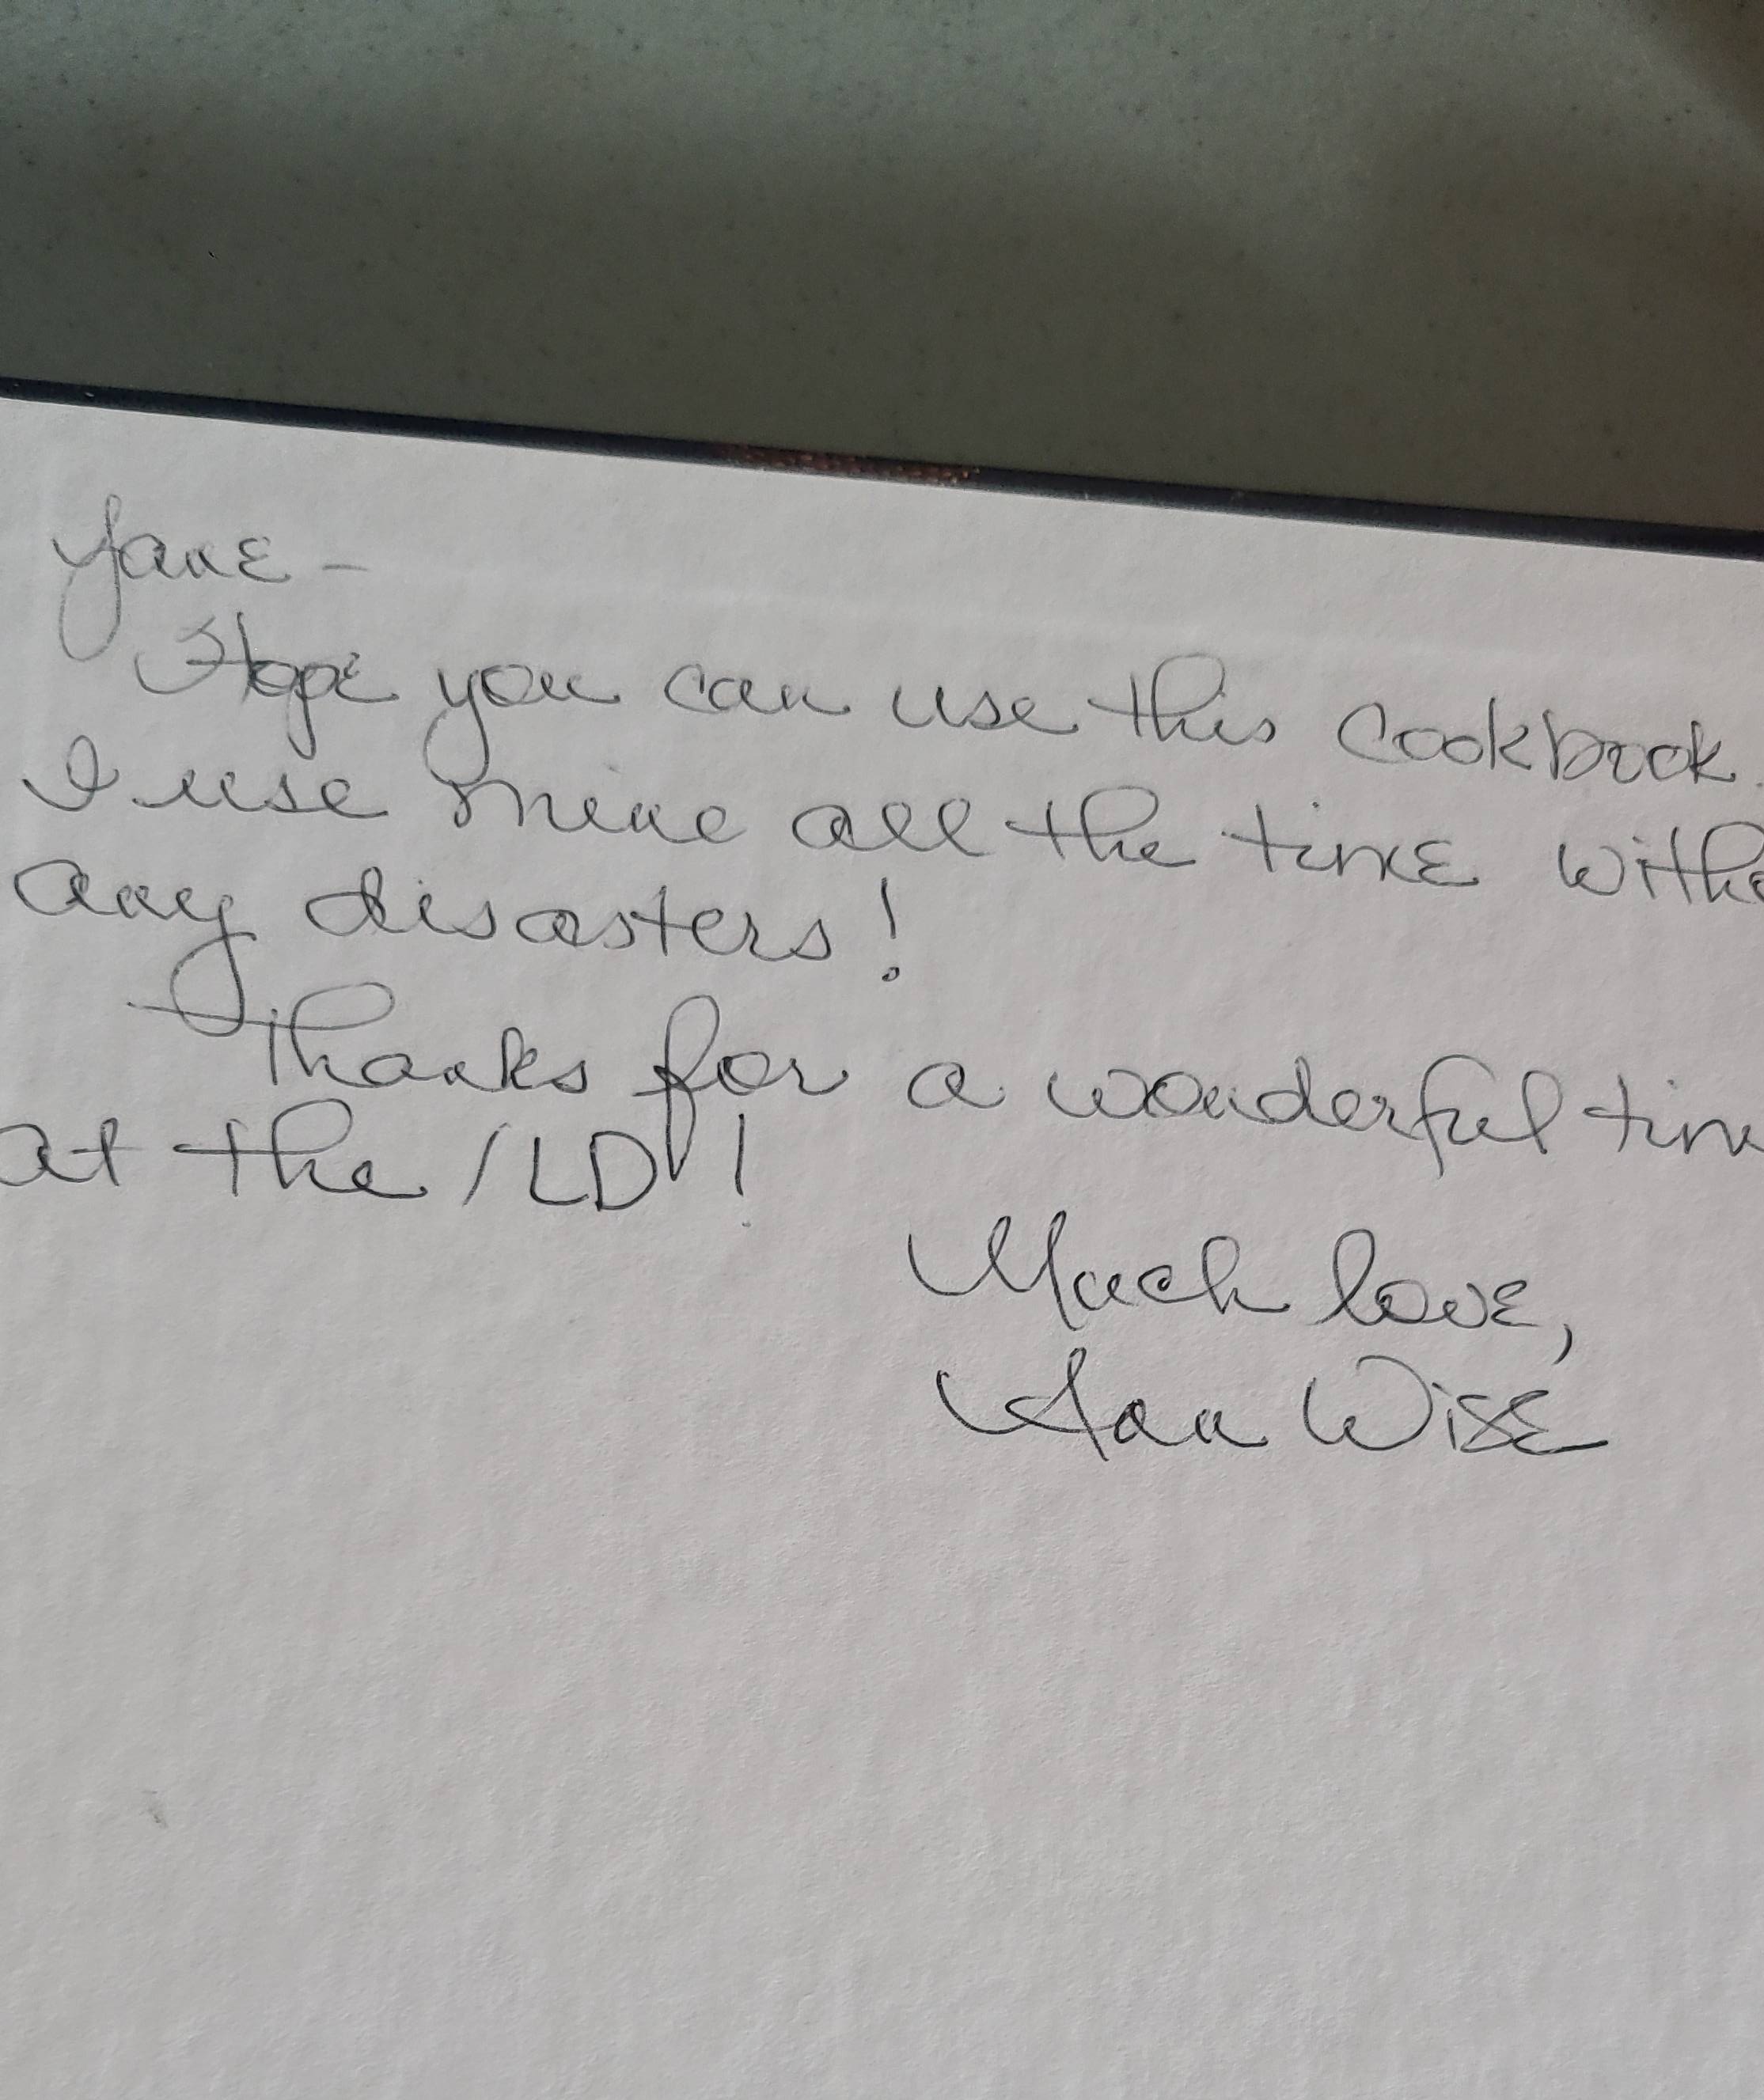 Jane -
Hope you can use this cookbook.
I use mine all the time witho
any disasters!
Thanks for a wonderful tim
at the ILD!
Much love,
Ann Wise